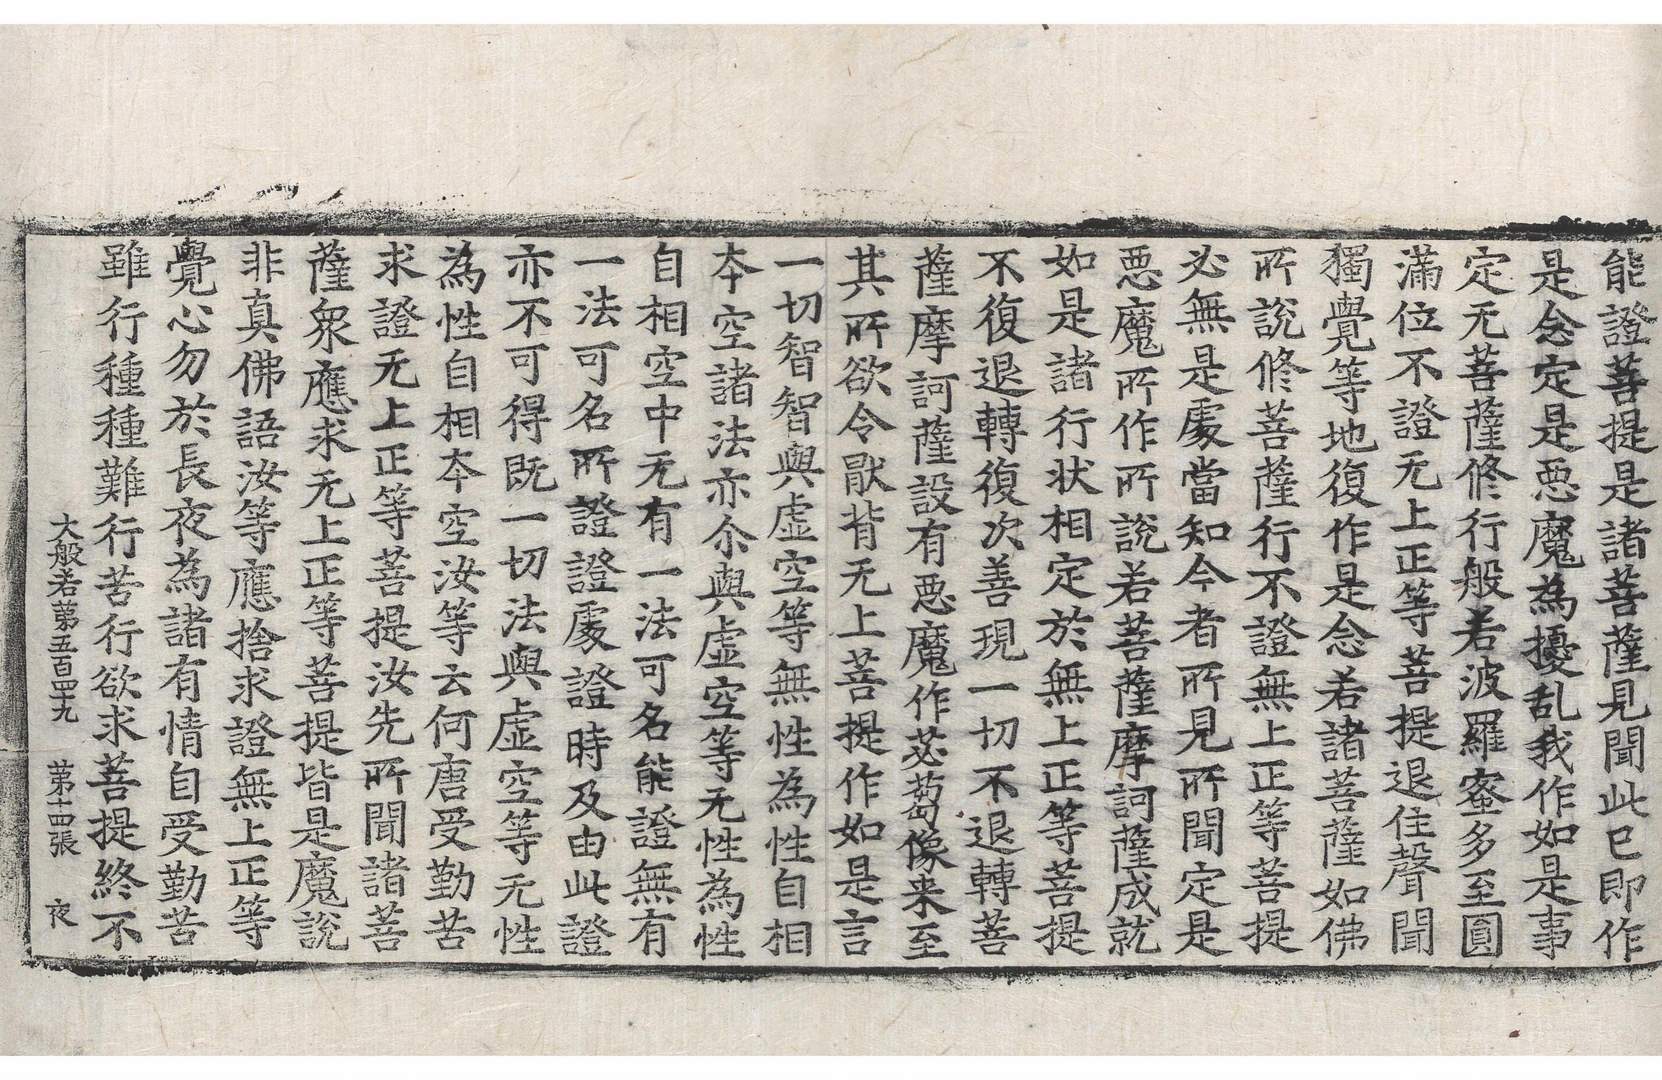 能證菩提是諸菩薩見聞此已即作
是念定是惡魔為擾乱我作如是事
定无菩薩修行般若波羅蜜多至圓
滿位不證无上正等菩提退住聲聞
獨覺等地復作是念若諸菩薩如佛
所說修菩薩行不證無上正等菩提
必無是處當知今者所見所聞定是
惡魔所作所說若菩薩摩訶薩成就
如是諸行状相定於無上正等菩提
不復退轉復次善現一切不退轉菩
薩摩訶薩設有惡魔作苾蒭像来至
其所欲令猒背无上菩提作如是言
一切智智與虛空等無性為性自相
本空諸法亦尒與虛空等无性為性
自相空中无有一法可名能證無有
一法可名所證證處證時及由此證
亦不可得既一切法與虛空等无性
為性自相本空汝等云何唐受勤苦
求證无上正等菩提汝先所聞諸菩
薩衆應求无上正等菩提皆是魔說
非真佛語汝等應捨求證無上正等
覺心勿於長夜為諸有情自受勤苦
雖行種種難行苦行欲求菩提終不
大般若第五百四十九 第十四張 夜